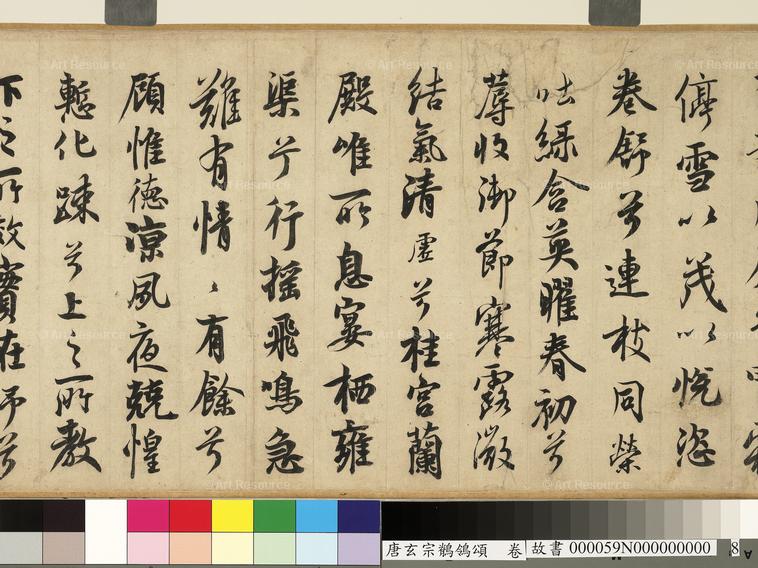 停雪以茂以悅恣
卷舒兮連枝同榮
吐綠含英曜春初兮
蓐收御節寒露微
結氣清虛兮桂宮蘭
殿唯所息宴栖雍
渠兮行搖飛鳴急
難有情〻有餘兮
顧惟德涼夙夜兢惶
慙化疎兮上之所教
下之所效實在予兮
唐玄宗鶺鴒頌 卷 故書 000059N000000000 8
© Art Resource